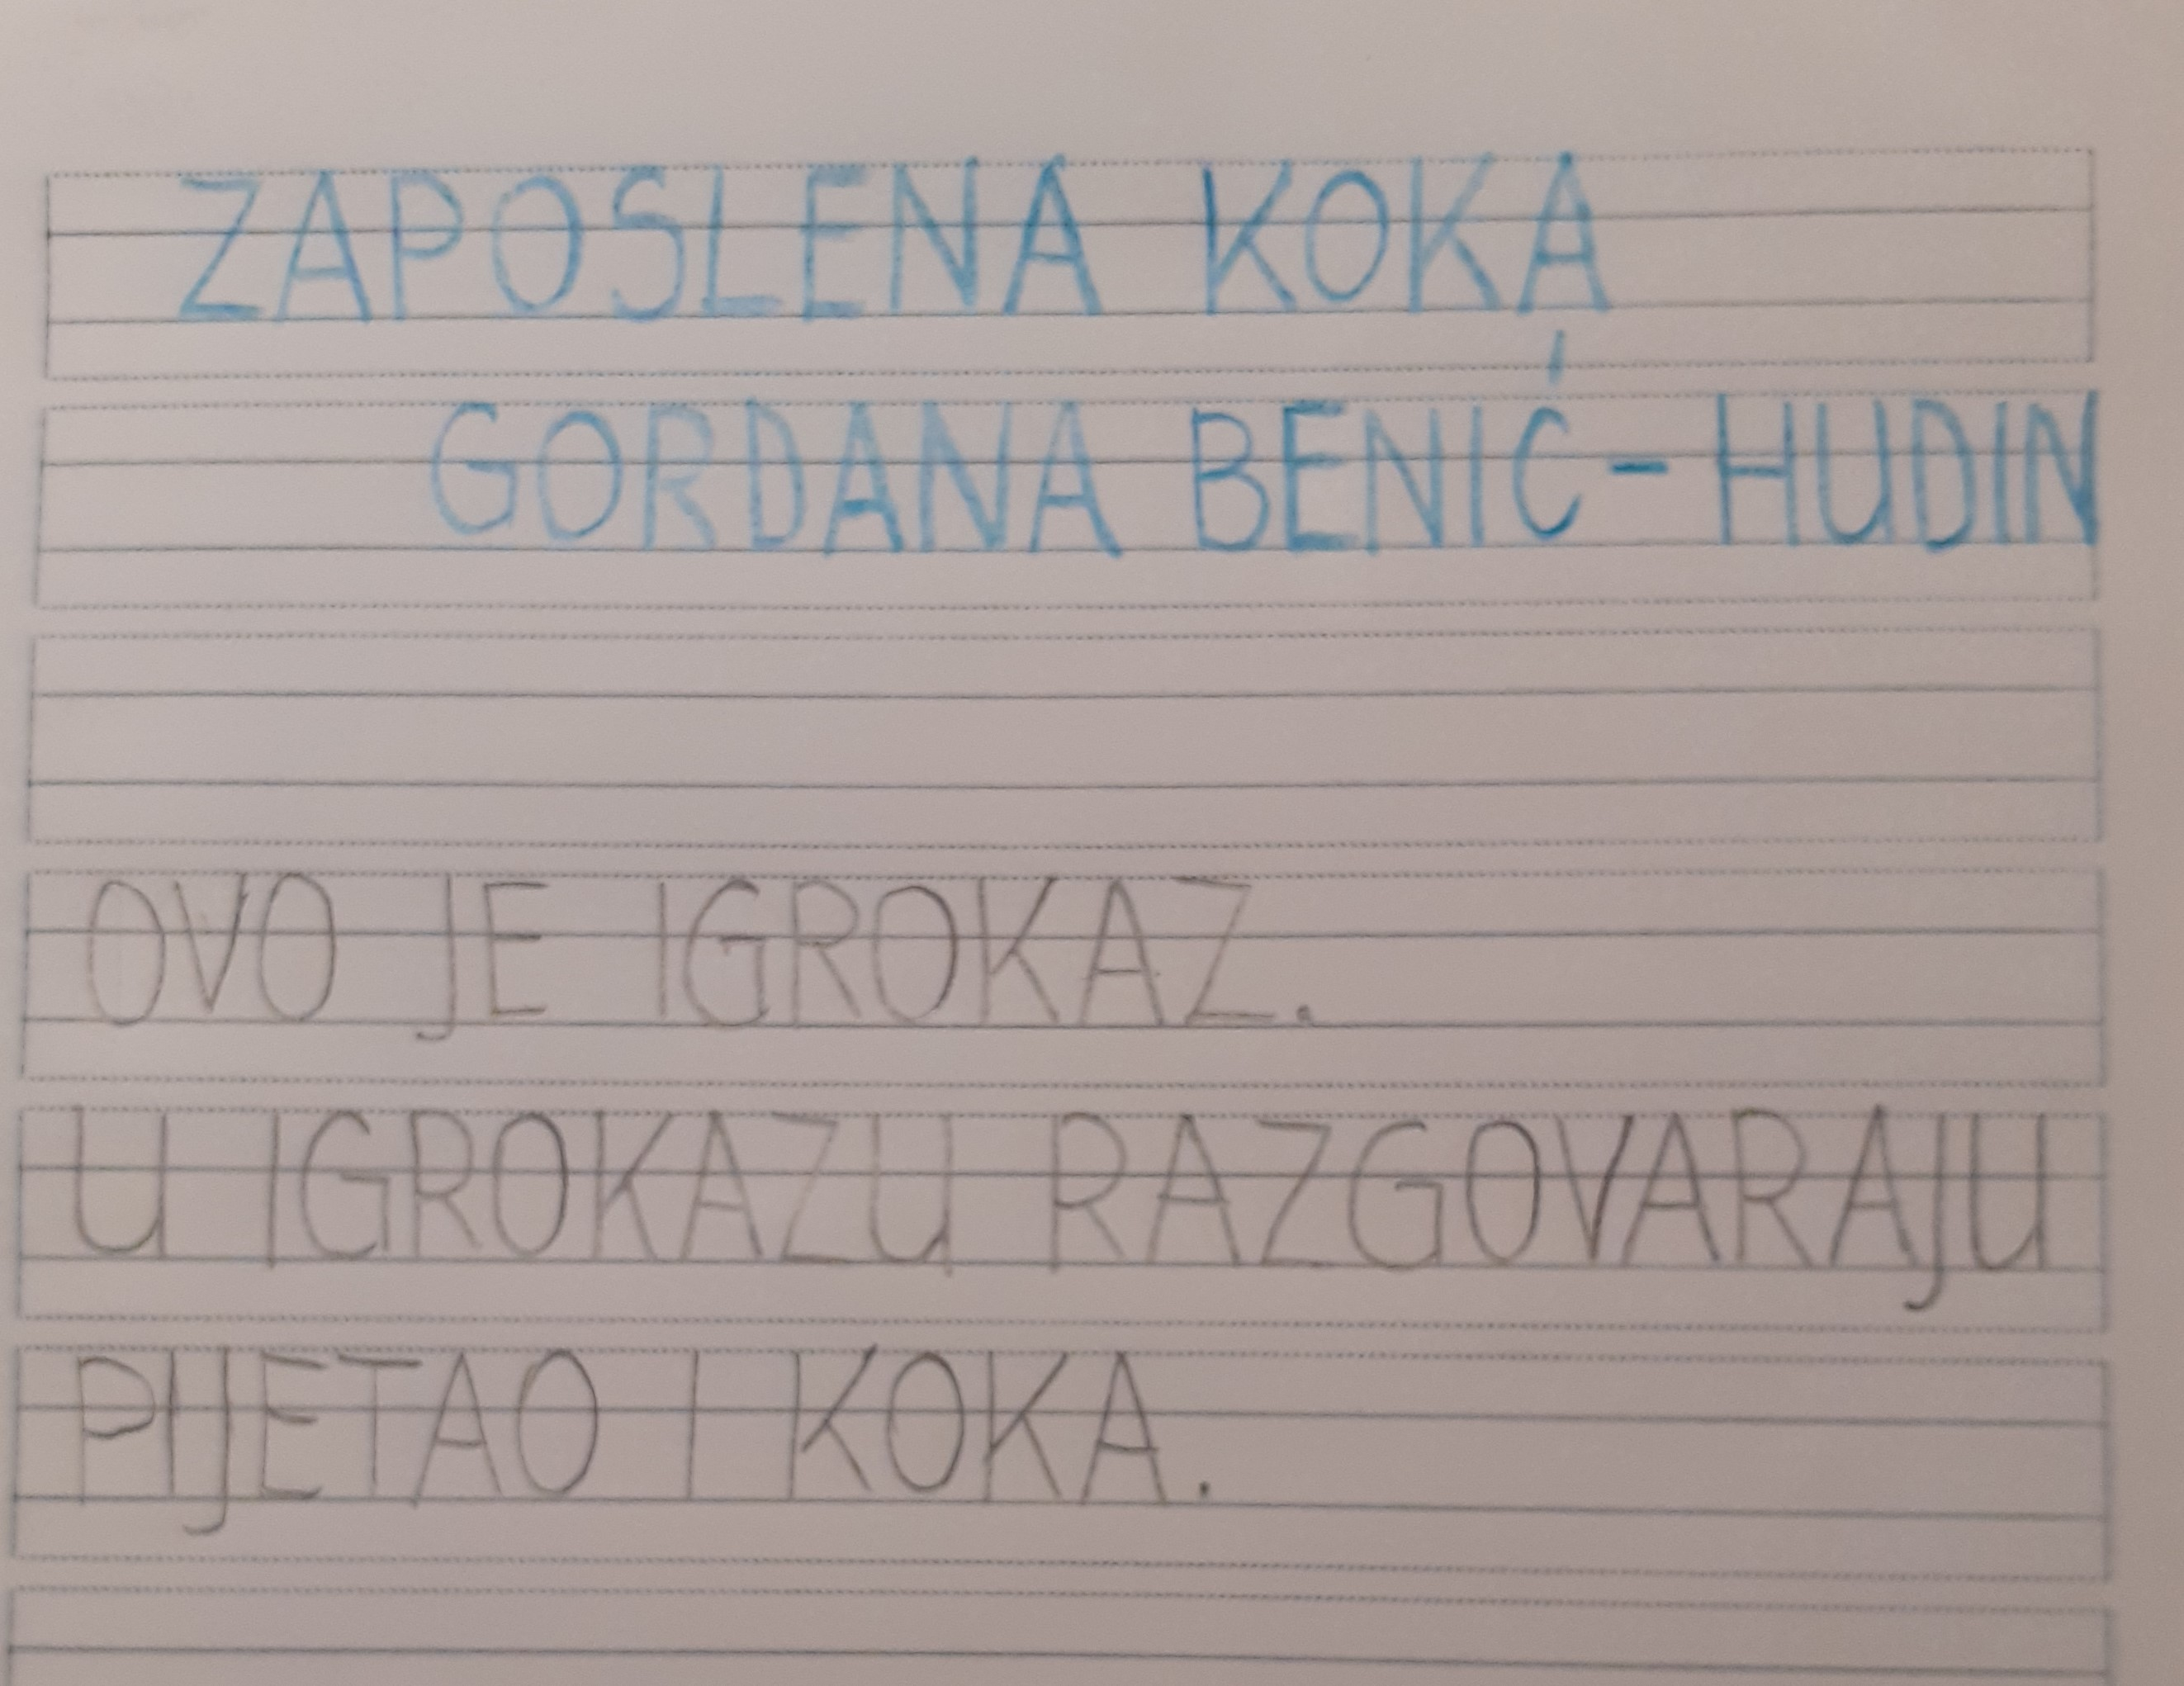 ZAPOSLENA KOKA
GORDANA BENIĆ-HUDIN
OVO JE IGROKAZ.
U IGROKAZU RAZGOVARAJU
PIJETAO I KOKA.